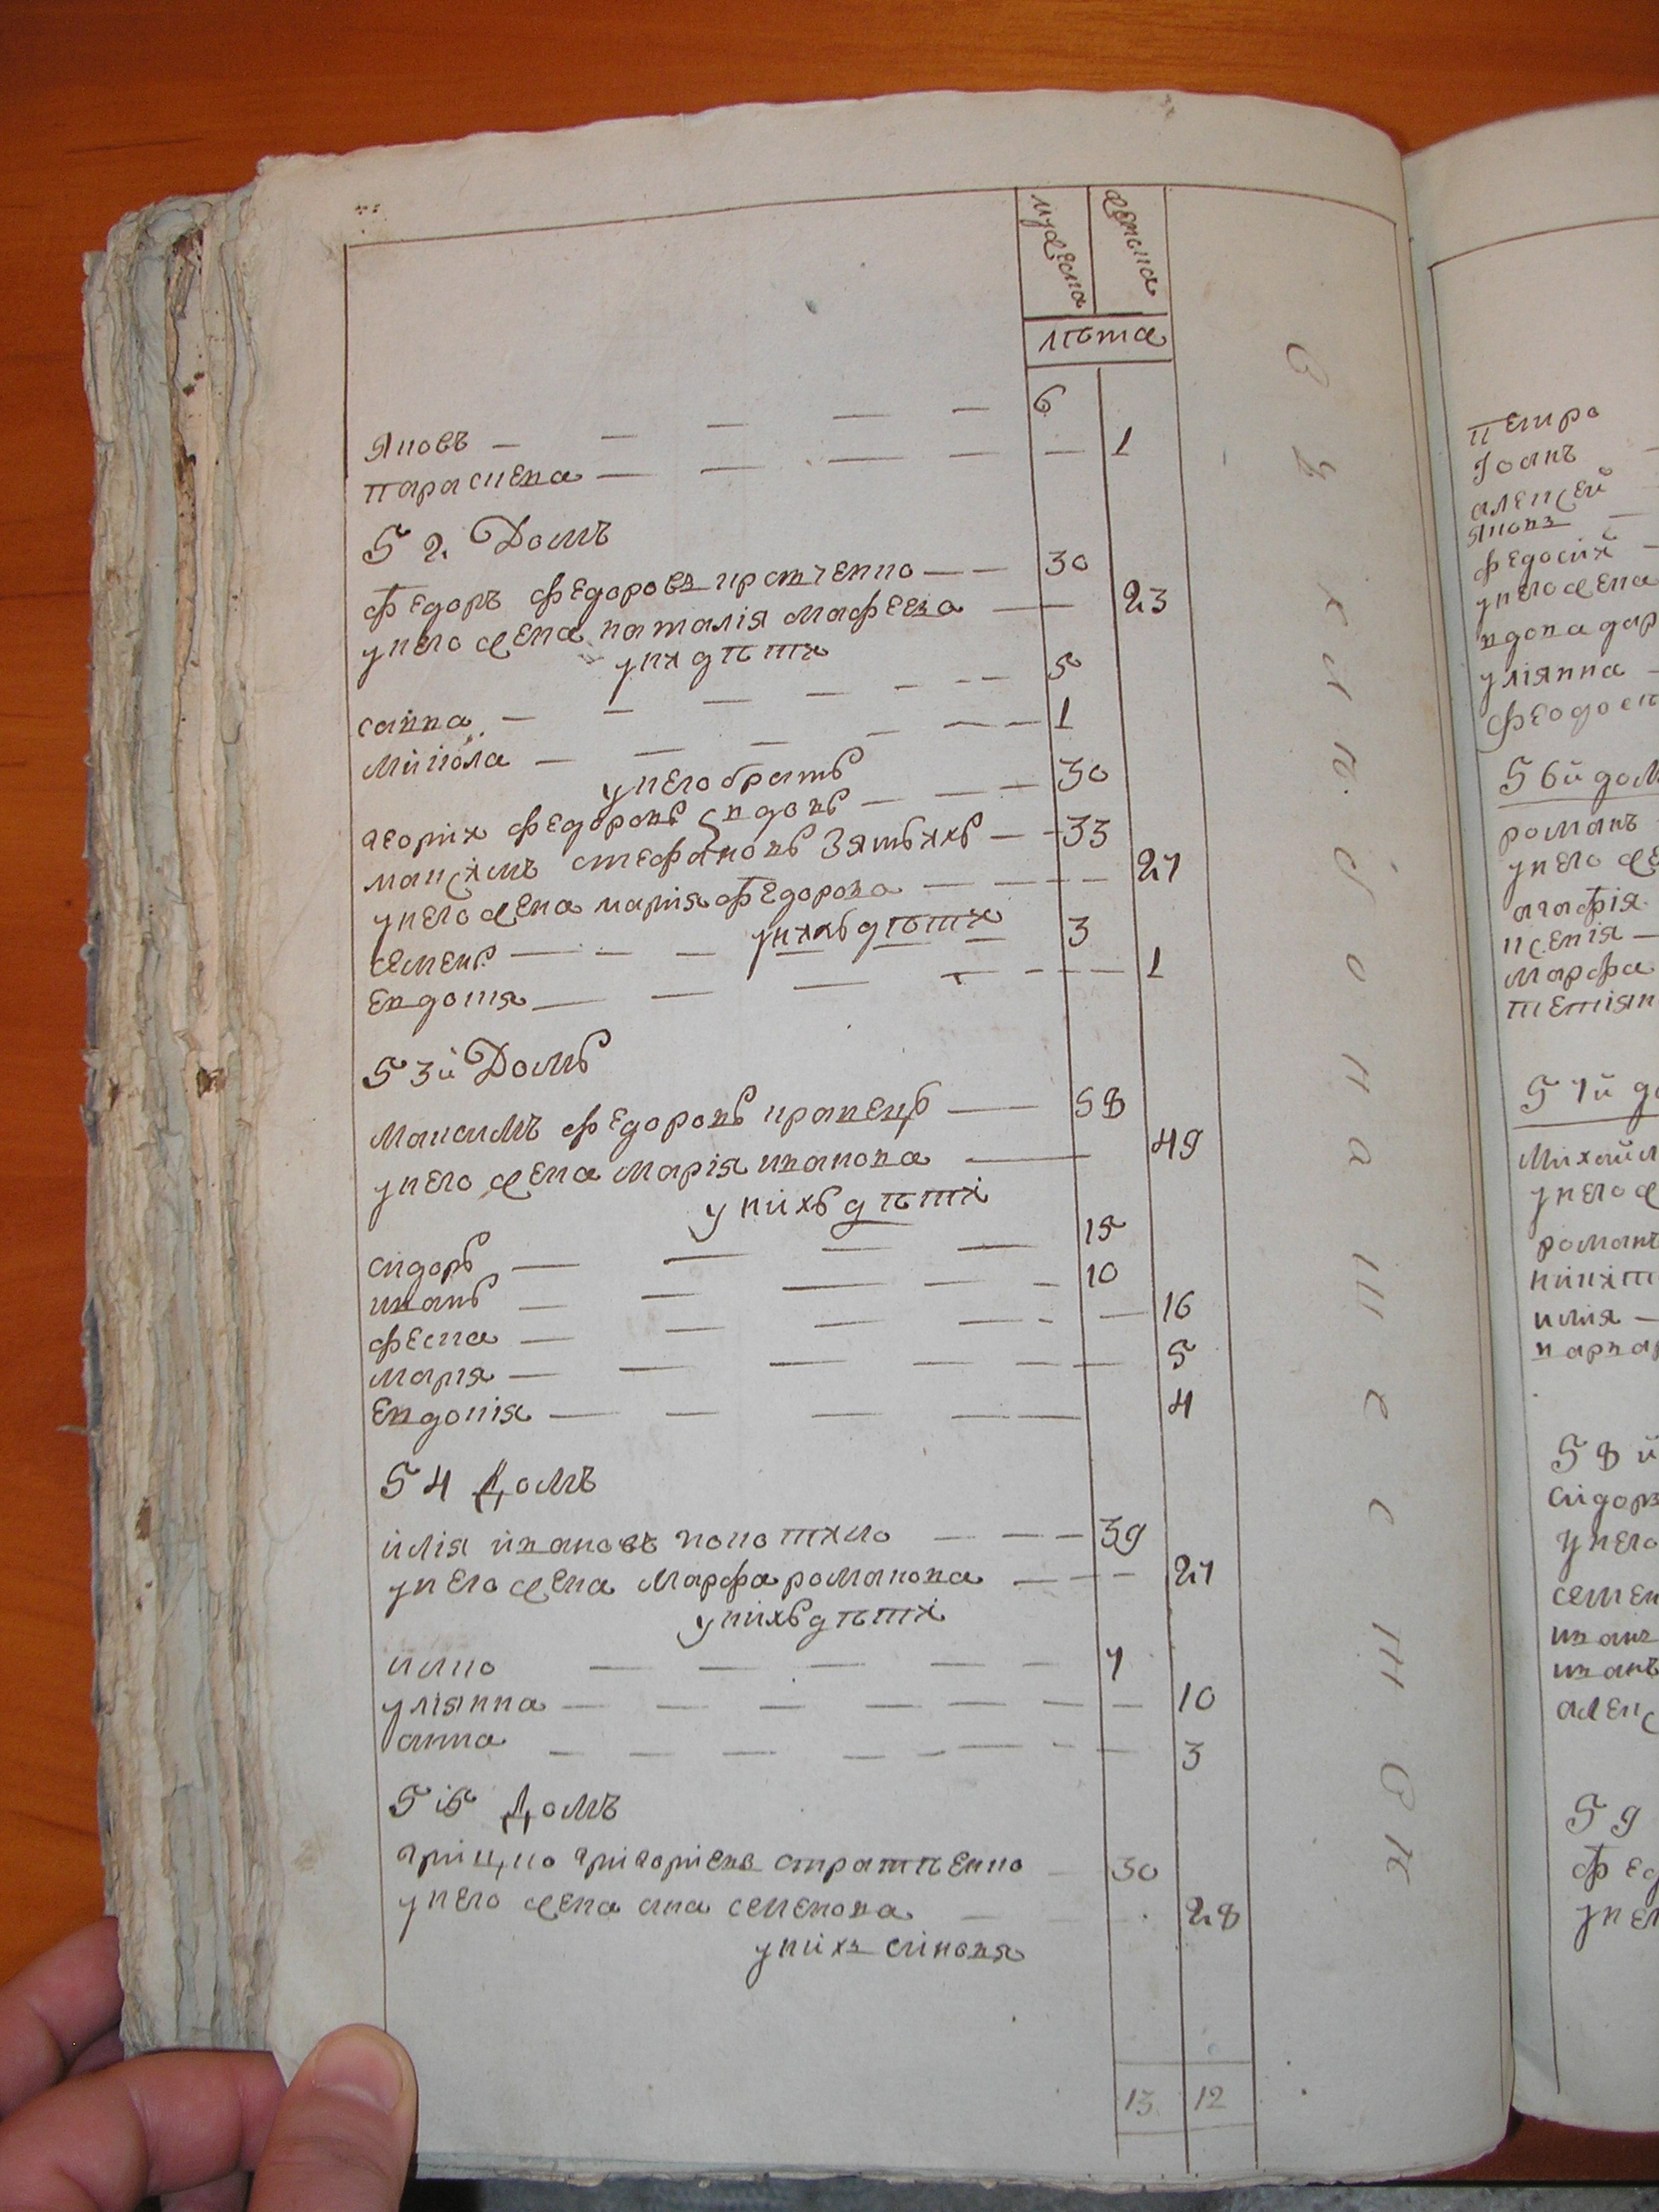 мужеска
женска
лѣта
Яковъ — — — — — 6
Параскева — — — — — 1
52. Домъ
Федоръ Федоровъ — — 30
унего жена наталія мафеева — 23
уних дѣти
савка — — — — — — 5
Микола — — — — — — 1
унего братъ
георгій Федоровъ вдовъ — — — 30
максимъ стефановъ зятьихъ — — 33
унего жена марія федорова — — — 27
унихъ дѣти
семенъ — — — — — 3
Евдокия — — — — — — 1
53й Домъ
Максимъ федоровъ кравецъ — 58
унего жена Марія иванова — 49
унихъ дѣти
сидоръ — — — — 15
иванъ — — — — — 10
феска — — — — — — 16
мария — — — — — — 5
Евдокія — — — — — 4
54 Домъ
илія ивановъ — — — 39
унего жена Марфа романова — — — 27
унихъ дѣти
илко — — — — — 7
уліянна — — — — — — — 10
анна — — — — — — — — 3
55 Домъ
грицко григориевъ — 30
унего жена ана семенова — 28
унихъ синовя
13 12
петро
Іоанъ
алексей
яковъ
федосій
унего жена
вдова дар
уліянна —
феодос
56й дом
романъ
унего же
агафія
ксенія —
Марфа
тетіян
57й до
Михайл
унего ж
романъ
никит
илія —
варвар
58 й
сидоръ
унего
семен
иванъ
иванъ
алекс
59
фед
унег